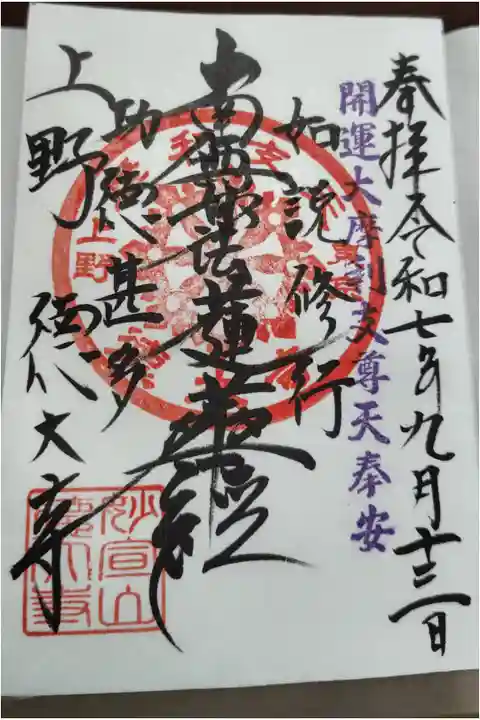 奉拝 令和七年九月十三日
開運大摩利支尊天奉安
如説修行
南無妙法蓮華経
功徳甚多
上野 徳大寺
上野
妙宣山
徳大寺